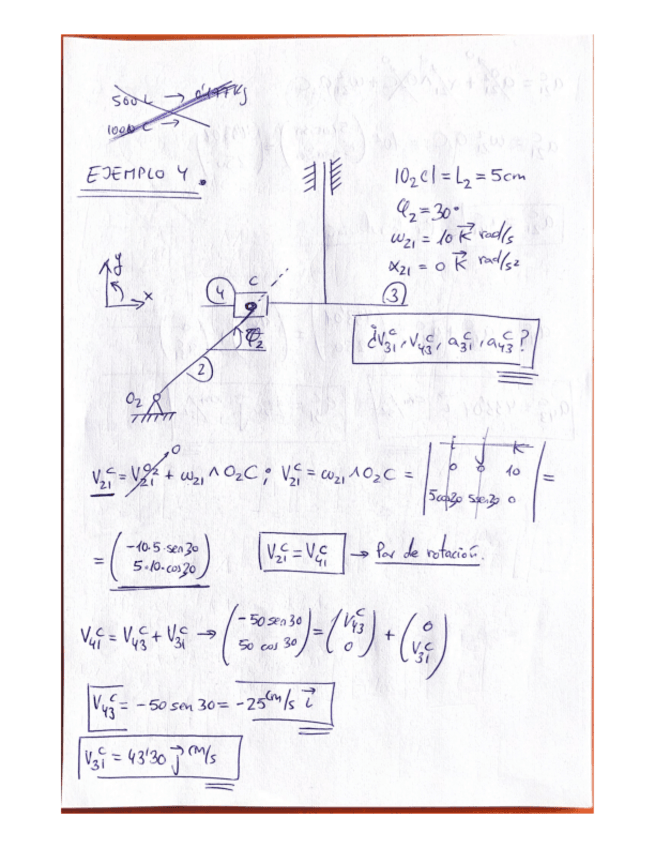 500L → 0'177Kg
1000L →
EJEMPLO 4.
|O₂C| = L₂ = 5cm
φ₂ = 30°
ω₂₁ = 10 K⃗ rad/s
α₂₁ = 0 K⃗ rad/s²
y
x
4
C
3
φ₂
2
O₂
¿V₃₁ᶜ, V₄₃ᶜ, a₃₁ᶜ, a₄₃ᶜ?
V₂₁ᶜ = V₂₁ᴼ² + ω₂₁ ∧ O₂C ; V₂₁ᶜ = ω₂₁ ∧ O₂C = | i j K | =
0
0 0 10
5cos30 5sen30 0
= ( -10·5·sen30
5·10·cos30 )
V₂₁ᶜ = V₄₁ᶜ → Par de rotación.
V₄₁ᶜ = V₄₃ᶜ + V₃₁ᶜ → ( -50 sen30 50 cos 30 ) = ( V₄₃ᶜ 0 ) + ( 0 V₃₁ᶜ )
V₄₃ᶜ = -50 sen 30 = -25 cm/s i⃗
V₃₁ᶜ = 43'30 j⃗ cm/s